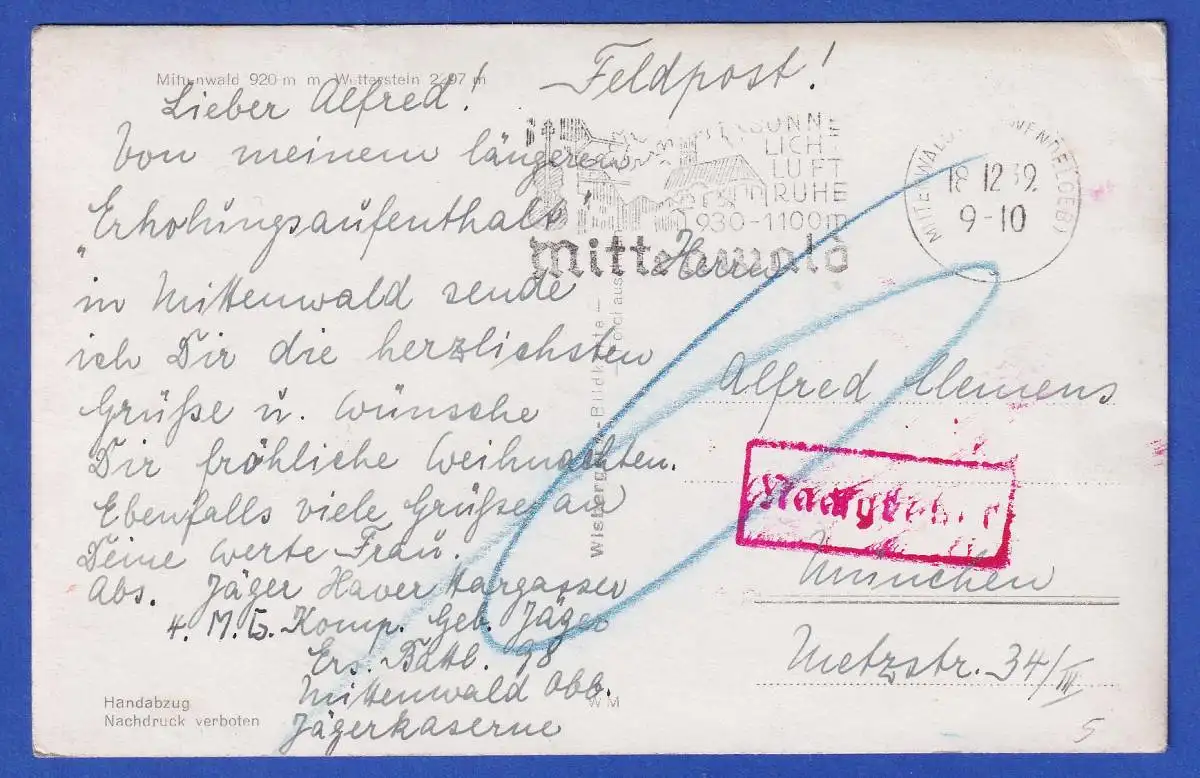 Mittenwald 920 m m. Wetterstein 2297 m
Lieber Alfred!
Von meinem längeren
"Erholungsaufenthalt"
in Mittenwald sende
ich Dir die herzlichsten
Grüße u. wünsche
Dir fröhliche Weihnachten.
Ebenfalls viele Grüße an
Deine werte Frau.
Abs. Jäger Xaver Hargasser
4. M.G. Komp. Geb. Jäger
Ers. Battl. 98
Mittenwald Obb.
Jägerkaserne
Handabzug
Nachdruck verboten
Feldpost!
SONNE
LICHT
LUFT
RUHE
930-1100m
Mittenwald
MITTENWALD
18.12.39.
9-10
Bildkarte
Herrn
Alfred Clemens
Nachgebühr
München
Metzstr. 34/III
WM
5